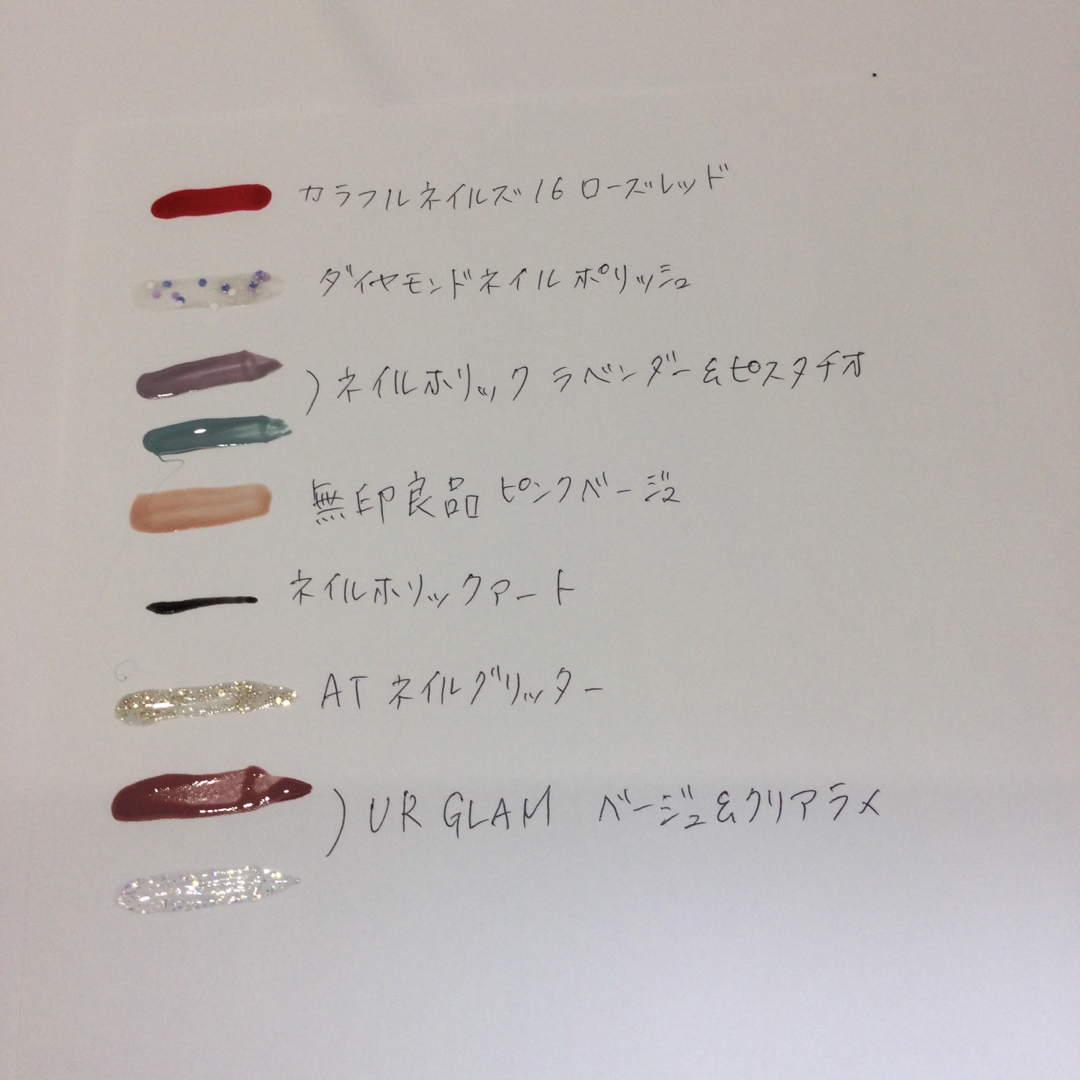 カラフルネイルズ16 ローズレッド
ダイヤモンドネイル ポリッシュ
)ネイルホリック ラベンダー&ピスタチオ
無印良品 ピンクベージュ
ネイルホリックアート
AT ネイルグリッター
)UR GLAM ベージュ&クリアラメ